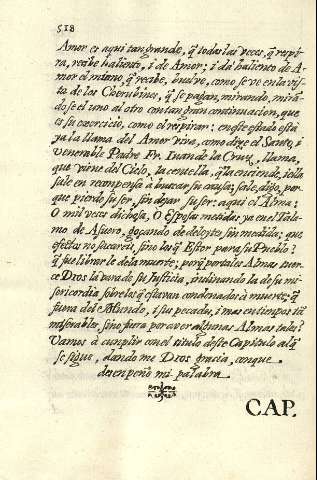 518
Amor es aqui tan grande, q̃ todas las veces, q̃ respi-
ra, recibe haliento, i dè Amor; i dà haliento de A-
mor el mismo q̃ recibe, buelve, como se ve en la vis-
ta de los Cherubines, q̃ se pagan, mirando, mirã-
dose el uno al otro con tan gran continuacion, que
es su exercicio, como el respirar: en este estado està
ya la llama del Amor viva, como dize el Santo, i
Venerable Padre Fr. Iuan de la Cruz, llama,
que viene del Cielo, la centella, q̃ la enciende, i ella
sale en recompensa à buscar su causa; sale, digo, por-
que pierde su ser, sin dejar su ser: aqui el Alma:
O mil veces dichosa, O Esposas metidas ya en el Tala-
mo de Asuero, gozando de deleytes, sin medida; que
efectos no sacareis, sino los q̃ Ester para su Pueblo?
q̃ fue librarle de la muerte; porq̃ por tales Almas tuer-
ce Dios la vara de su Iusticia, inclinando la de su mi-
sericordia sobre los q̃ estavan condenados à muerte; q̃
fuera del Mundo, i sus pecados, i mas en tiempos tã
miserables, sino fuera por aver algunas Almas tales?
Vamos à cumplir con el titulo deste Capitulo al q̃
se sigue, dando me Dios gracia, conque
desenpeño mi palabra.
CAP.